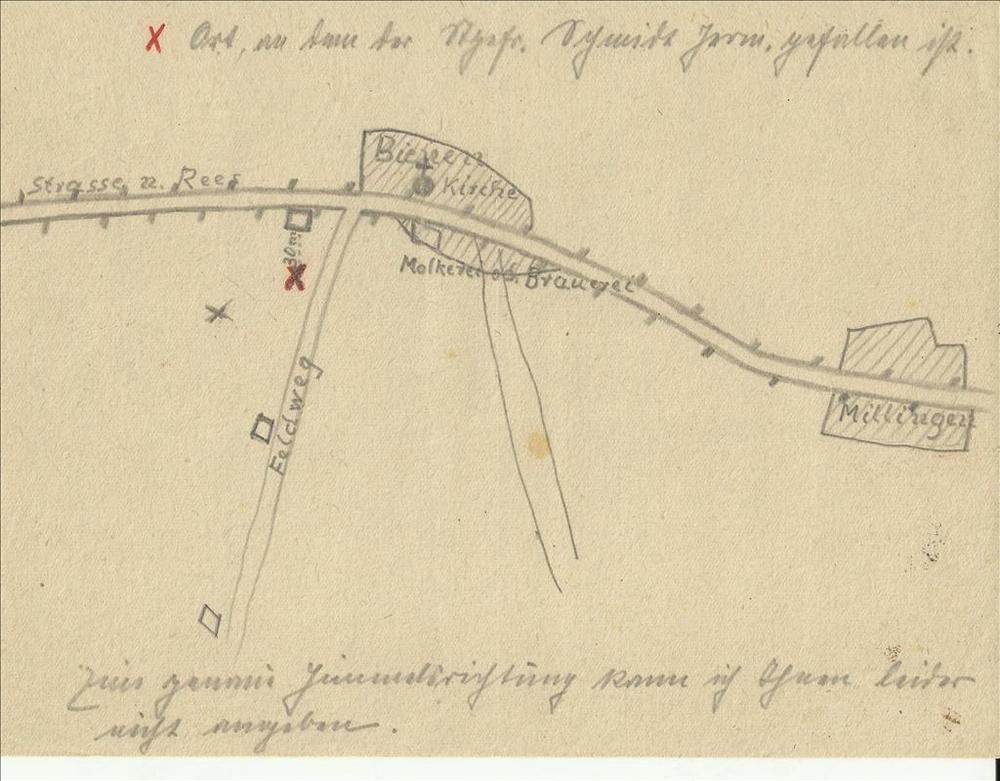 x Ort, an dem der Stgefr. Schmidt Herm. gefallen ist.
Strasse n. Rees
Bienen
Kirche
30m
Molkerei od. Brauerei
Feldweg
Millingen
Eine genaue Himmelsrichtung kann ich Ihnen leider
nicht angeben.